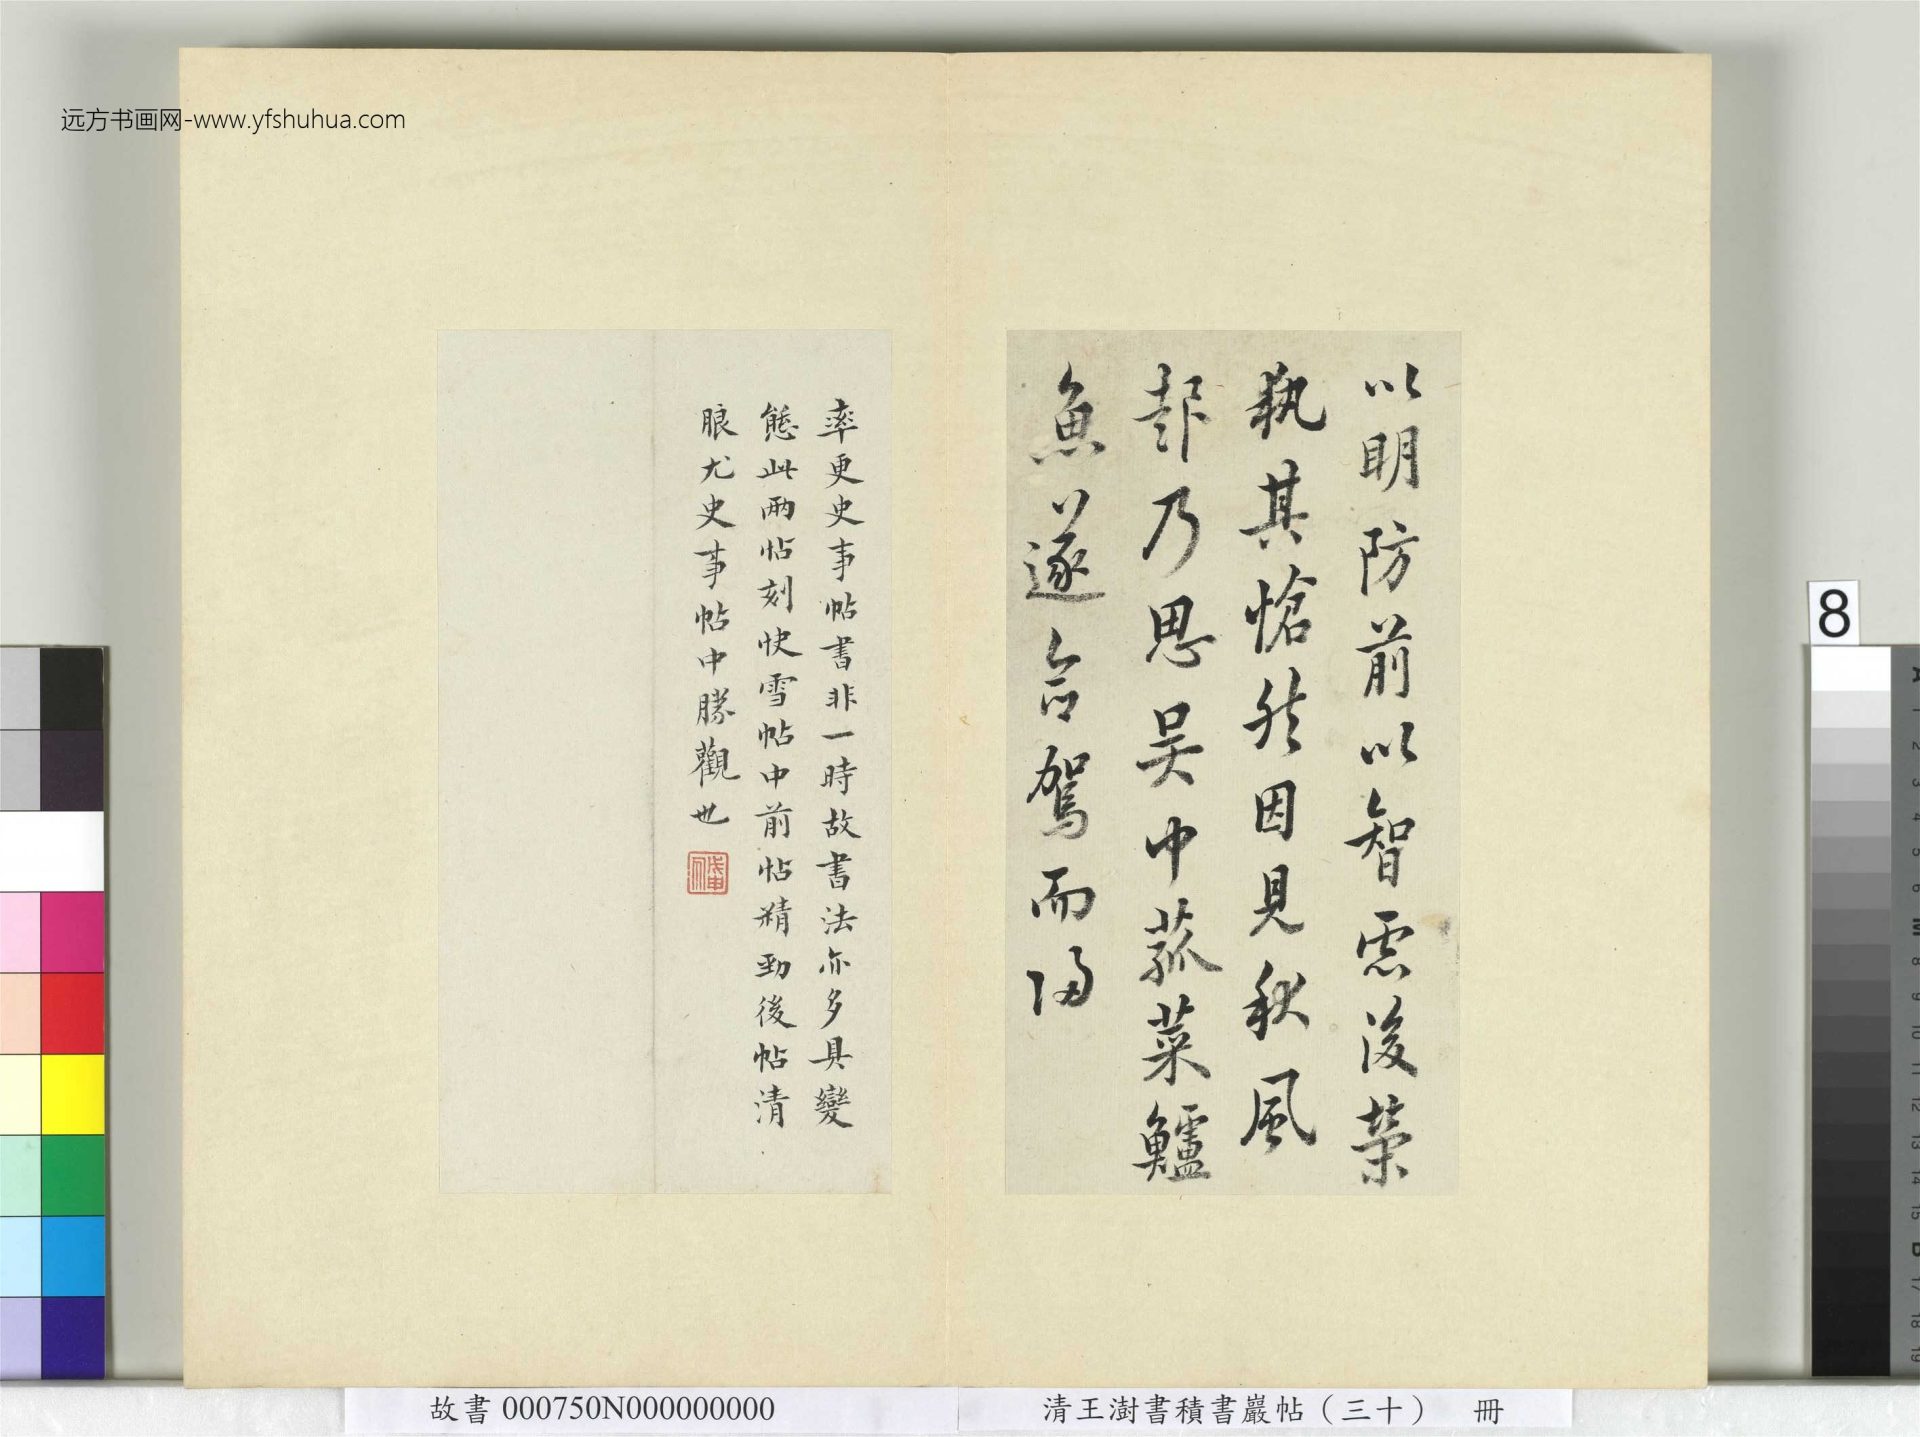 远方书画网-www.yfshuhua.com
以明防前以智慮後榮
執其愴然因見秋風
起乃思吳中菰菜鱸
魚遂命駕而歸
率更史事帖書非一時故書法亦多具變
態此兩帖刻快雪帖中前帖精勁後帖清
朗尤史事帖中勝觀也
8
故書 000750N000000000
清王澍書積書巖帖（三十） 冊